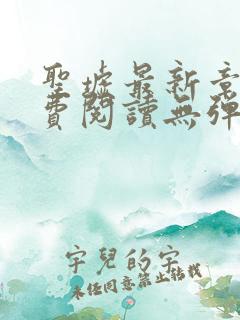 聖墟最新章
費閱讀無彈
宇兒的字
未經同意禁止轉載